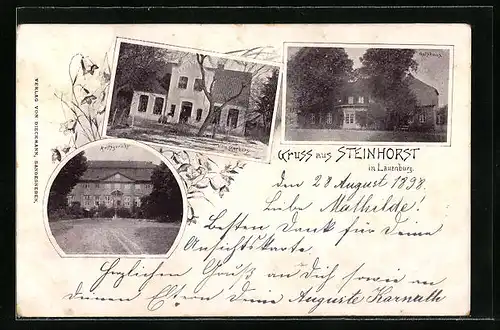 VERLAG VON DIECKMANN, SANDESNEBEN.
Amtsgericht
Gruss aus STEINHORST
in Lauenburg.
den 28 August 1898.
Liebe Mathilde!
Besten Dank für Deine
Ansichtskarte.
Herzlichen Gruß an Dich sowie an
deinen Eltern Deine Auguste Karnatk